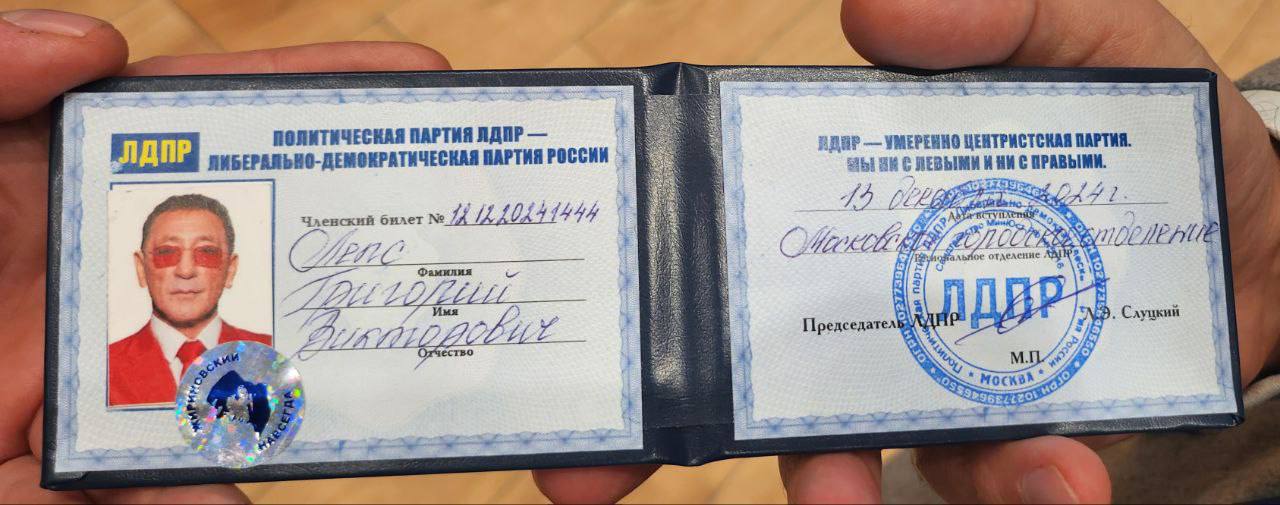 ЛДПР
ПОЛИТИЧЕСКАЯ ПАРТИЯ ЛДПР —
ЛИБЕРАЛЬНО-ДЕМОКРАТИЧЕСКАЯ ПАРТИЯ РОССИИ
Членский билет № 121220241444
Лепс
Фамилия
Григорий
Имя
Викторович
Отчество
ЖИРИНОВСКИЙ
НАВСЕГДА
ЛДПР — УМЕРЕННО ЦЕНТРИСТСКАЯ ПАРТИЯ.
МЫ НИ С ЛЕВЫМИ И НИ С ПРАВЫМИ.
13 2024г.
Дата вступления
Московское городское отделение
Региональное отделение ЛДПР
ЛДПР
Председатель ЛДПР
Л.Э. Слуцкий
М.П.
МОСКВА
ОГРН 1027739646550